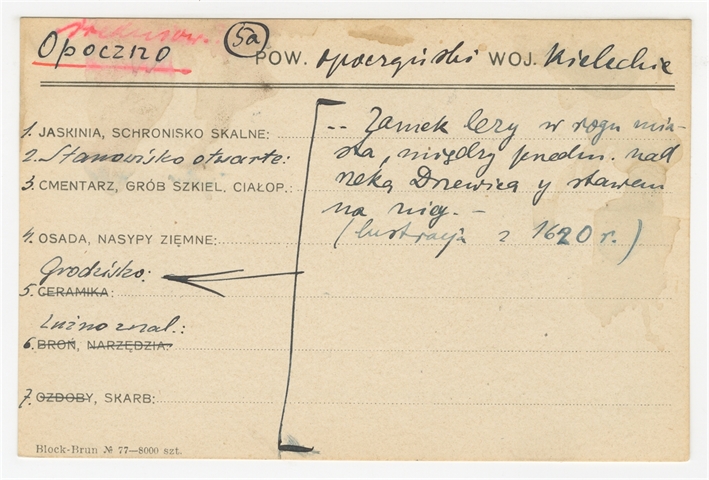 Opoczno 5a POW. opoczyński WOJ. Kieleckie
1. JASKINIA, SCHRONISKO SKALNE:
2. Stanowisko otwarte:
3. CMENTARZ, GRÓB SZKIEL, CIAŁOP.:
4. OSADA, NASYPY ZIĘMNE:
Grodzisko:
5. CERAMIKA:
Luźno znal.:
6. BROŃ, NARZĘDZIA:
7. OZDOBY, SKARB:
-- Zamek leży w rogu mia-
sta, między przedm. nad
rzeką Drzewicą y stawem
na niey. -
(lustracja z 1620 r.)
Block-Brun № 77—8000 szt.